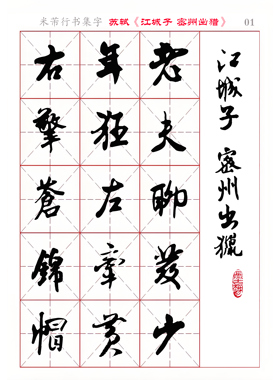 米芾行书集字 苏轼《江城子 密州出猎》 01
江城子 密州出獵
老夫聊發少
年狂左牽黄
右擎蒼錦帽